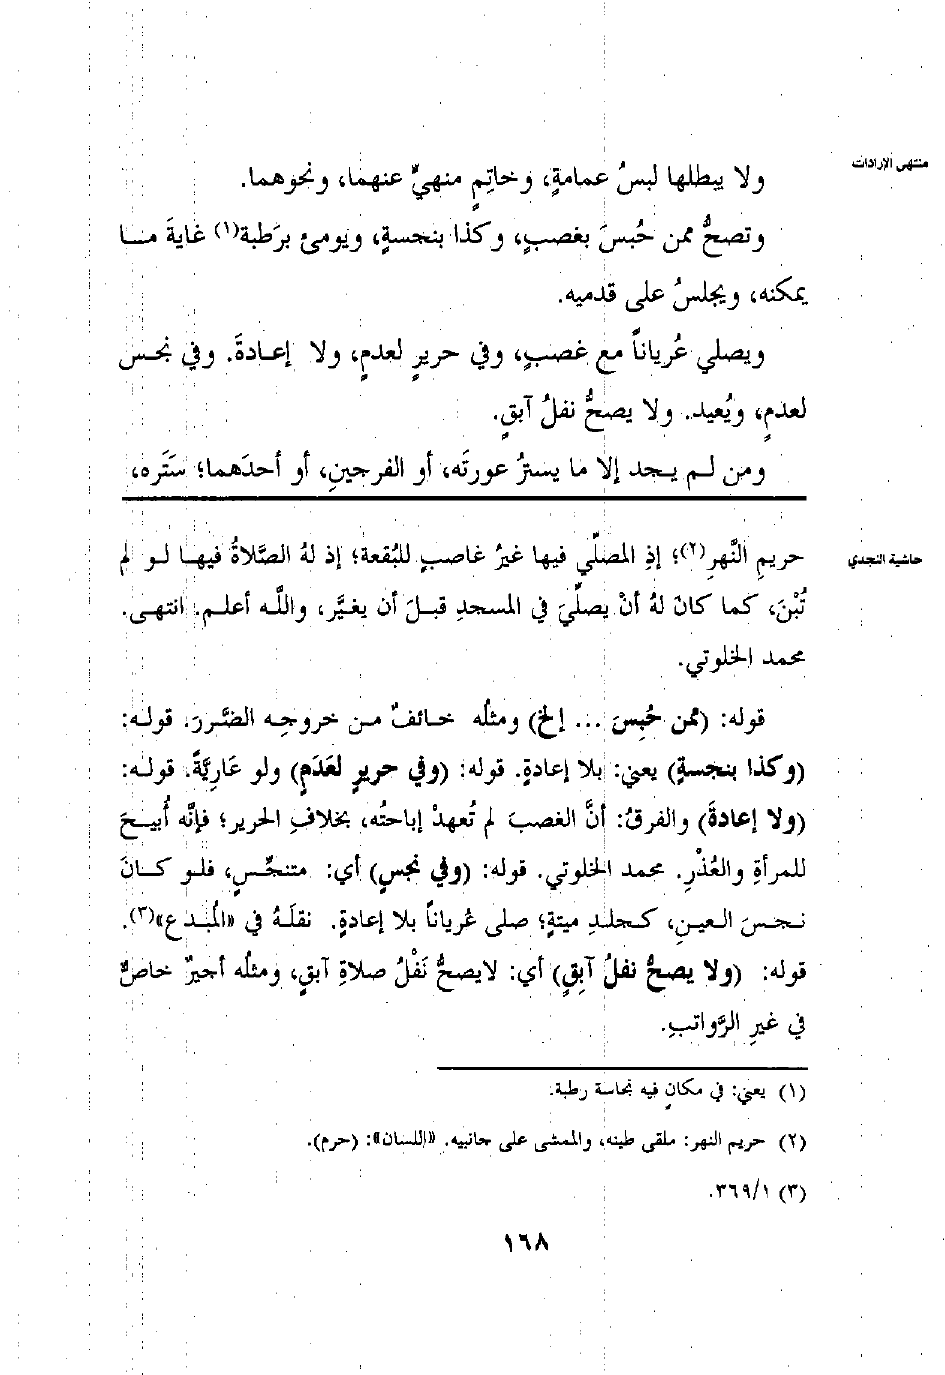 منتهى الإرادات
ولا يبطلها لبسُ عمامةٍ، وخاتِمٍ منهيٍّ عنهما، ونحوهما.
وتصحُّ ممن حُبسَ بغصبٍ، وكذا بنجسةٍ، ويومئ برَطبة(١) غايةَ مـا
يمكنه، ويجلسُ على قدميه.
ويصلي عُرياناً مع غصبٍ، وفي حريرٍ لعدمٍ، ولا إعـادةَ. وفي نجـس
لعدمٍ، ويُعيد. ولا يصحُّ نفلُ آبقٍ.
ومن لـم يـجد إلا ما يسترُ عورتَه، أو الفرجينِ، أو أحدَهما؛ سَتَره،
حاشية النجدي
حريمِ النَّهرِ(٢)؛ إذِ المصلِّي فيها غيرُ غاصبٍ للبُقعة؛ إذ لهُ الصَّلاةُ فيهـا لـو لم
تُبْنَ، كما كانَ لهُ أنْ يصلِّيَ في المسجدِ قبـلَ أن يغيَّر، واللَّـه أعلـم. انتهـى.
محمد الخلوتي.
قوله: (ممن حُبِسَ ... إلخ) ومثلُه خـائفٌ مـن خروجِـه الضَّـررَ. قولـه:
(وكذا بنجسةٍ) يعني: بلا إعادةٍ. قوله: (وفي حريرٍ لعَدَمٍ) ولو عَارِيَّةً. قولـه:
(ولا إعادةَ) والفرقُ: أنَّ الغصبَ لم تُعهدْ إباحتُه، بخلافِ الحرير؛ فإنَّه أُبيـحَ
للمرأةِ والعُذْرِ. محمد الخلوتي. قوله: (وفي نجسٍ) أي: متنجِّسٍ، فلـو كـانَ
نجـسَ العـينِ، كـجلدِ ميتةٍ؛ صلى عُرياناً بلا إعادةٍ. نقلَـهُ في «المُبـدع»(٣).
قوله: (ولا يصحُّ نفلُ آبِقٍ) أي: لايصحُّ نَفْلُ صلاةِ آبقٍ، ومثلُه أجيرٌ خاصٌّ
في غيرِ الرَّواتبِ.
(١) يعني: في مكانٍ فيه نجاسة رطبة.
(٢) حريم النهر: ملقى طينه، والممشى على حافتيه. «اللسان»: (حرم).
(٣) ٣٦٩/١.
١٦٨